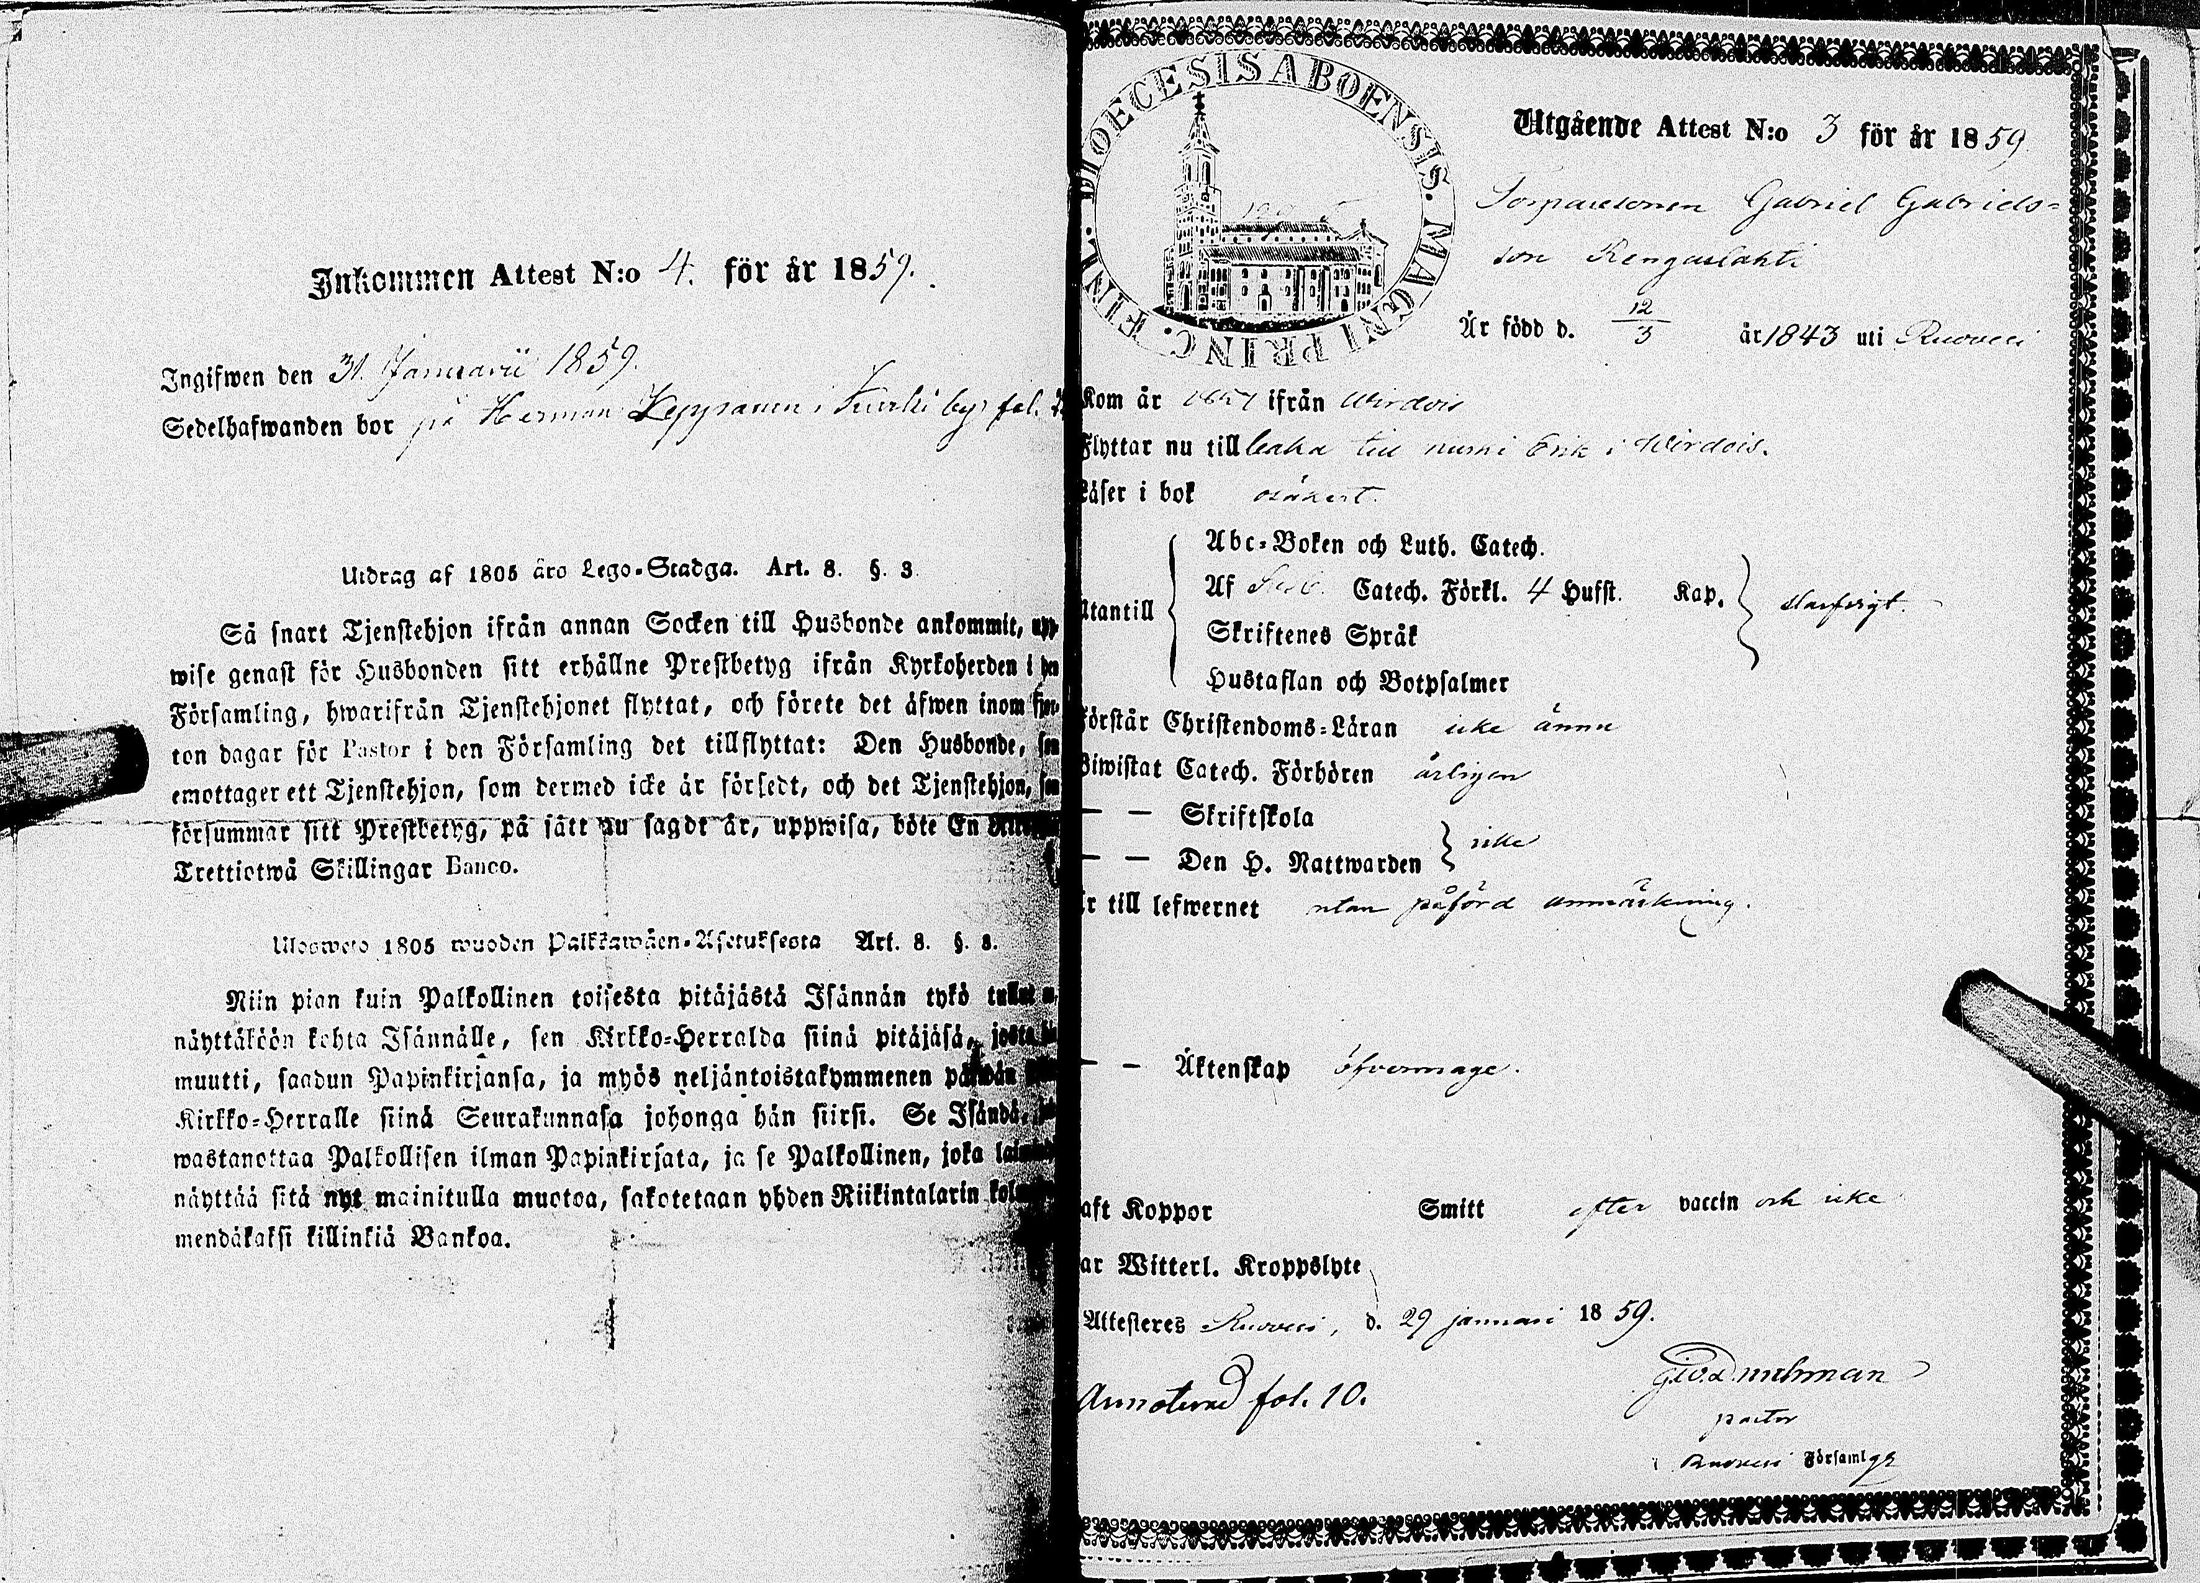 Inkommen Attest N:o 4. för år 1859.
Ingifwen den 31 Januarii 1859.
Sedelhafwanden bor på Herman Keppanen i Kurki by, fol.
Utdrag af 1805 års Lego-Stadga. Art. 8. §. 3.
Så snart Tjenstehjon ifrån annan Socken till Husbonde ankommit, upp-
wise genast för Husbonden sitt erhållne Prestbetyg ifrån Kyrkoherden i
Församling, hwarifrån Tjenstehjonet flyttat, och förete det äfwen inom fjor-
ton dagar för Pastor i den Församling det tillflyttat: Den Husbonde, som
emottager ett Tjenstehjon, som dermed icke är försedt, och det Tjenstehjon, som
försummar sitt Prestbetyg, på sätt nu sagdt är, uppwisa, böte En
Trettiotwå Skillingar Banco.
Ulosweto 1805 wuoden Palkkawäen-Asetuksesta Art. 8. §. 3.
Niin pian kuin Palkollinen toisesta pitäjästä Isännän tykö tullut
näyttäköön kohta Isännälle, sen Kirkko-Herralda siinä pitäjäsä, josta hän
muutti, saadun Papinkirjansa, ja myös neljäntoistakymmenen päiwän
Kirkko-Herralle siinä Seurakunnasa johonga hän siirsi. Se Isändä,
wastanottaa Palkollisen ilman Papinkirjata, ja se Palkollinen, joka
näyttää sitä nyt mainitulla muotoa, sakotetaan yhden Riikintalarin
mendäkaksi killinkiä Bankoa.
DIOECESIS ABOENSIS. MAGNI PRINC. FINL.
Utgående Attest N:o 3 för år 1859
Torparesonen Gabriel Gabriels-
son Rengaslahti
Är född d. 12/3 år 1843 uti Ruovesi
Kom år ifrån Wirdois
Flyttar nu till baka till numi Erik i Wirdois.
Läser i bok osäkert.
Abc-Boken och Luth. Catech.
Af Catech. Förkl. 4 Hufst. Kap.
Utantill slarfvigt.
Skriftenes Språk
Hustaflan och Botpsalmer
Förstår Christendoms-Läran icke ännu
Biwistat Catech. Förhören årligen
— — Skriftskola
— — Den H. Nattwarden icke
Är till lefwernet utan påförd anmärkning.
— — Äktenskap öfvermage.
Haft Koppor Smitt efter vaccin och icke
Har Witterl. Kroppslyte
Attesteres Ruovesi, d. 29 januari 1859.
Annoterad fol. 10.
pastor
Ruovesi Församlgs